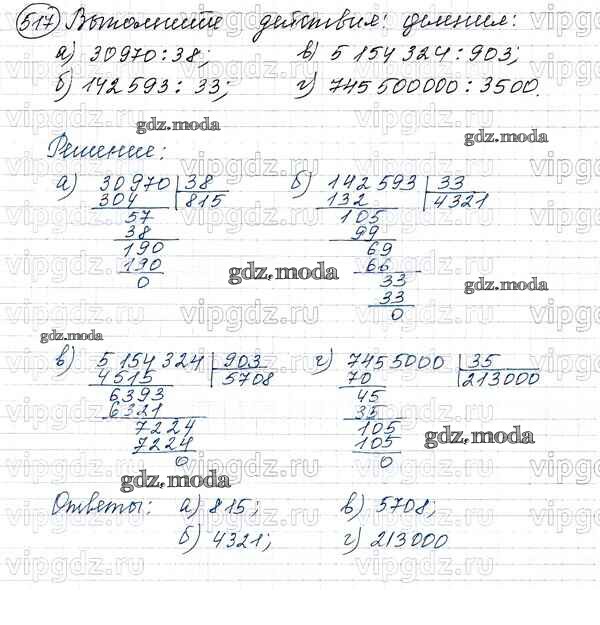 517 Выполните действия: деления:
а) 30970:38; в) 5 154 324:903;
б) 142 593: 33; г) 745 500000:3500.
gdz.moda gdz.moda
Решение:
а) 30970 38 б) 142 593 33
304 815 132 4321
57 105
38 99
190 69
190 66
0 33
33
0
gdz.moda gdz.moda
gdz.moda
в) 5 154 324 903 г) 745 5000 35
4515 5708 70 213000
6393 45
6321 35
7224 105
7224 105
0 0
gdz.moda
gdz.moda
Ответы: а) 815; в) 5708;
б) 4321; г) 213000
vipgdz.ru